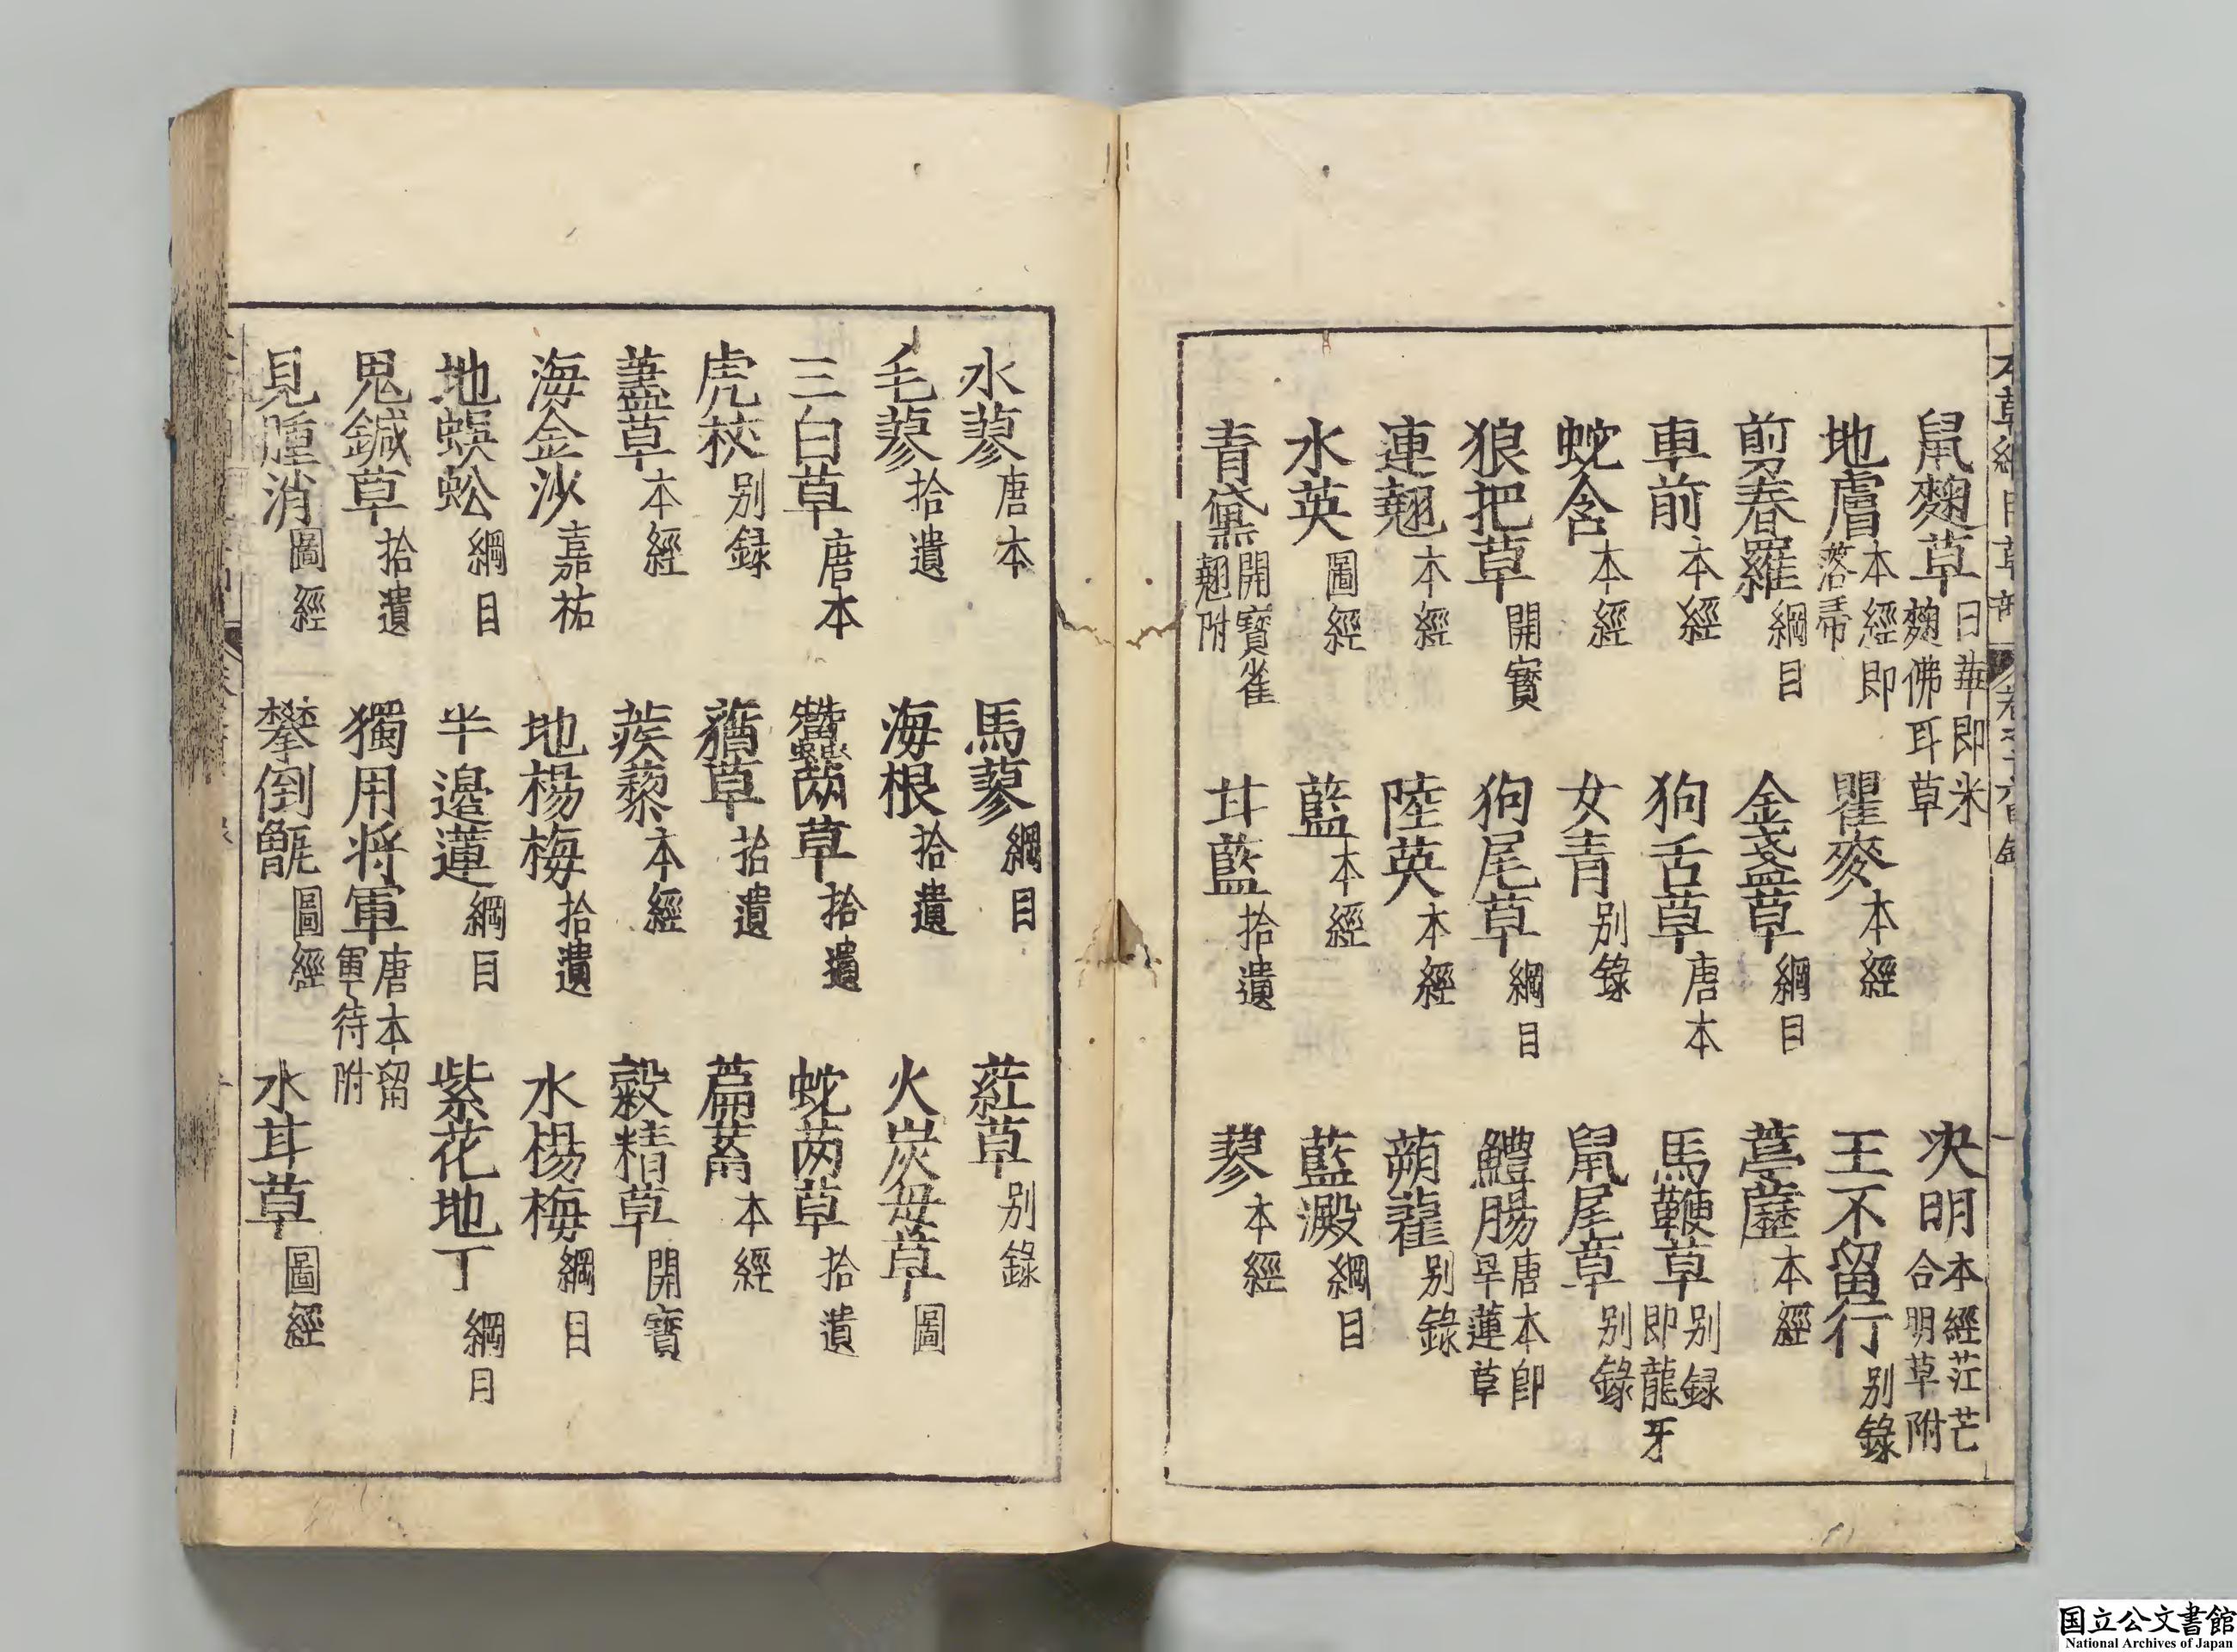 鼠麴草日華即米麴佛耳草　決明本經茳芒合明草附
地膚本經即落帚　瞿麥本經　王不留行別錄
剪春羅綱目　金盞草綱目　葶藶本經
車前本經　狗舌草唐本　馬鞭草別録即龍牙
蛇含本經　女青別錄　鼠尾草別錄
狼把草開寳　狗尾草綱目　鱧腸唐本即旱蓮草
連翹本經　陸英本經　蒴藋別錄
水英圖經　藍本經　藍澱綱目
青黛開寳雀翹附　甘藍拾遺　蓼本經
水蓼唐本　馬蓼綱目　葒草別錄
毛蓼拾遺　海根拾遺　火炭母草圖
三白草唐本　蠶繭草拾遺　蛇䓣草拾遺
虎杖別録　蕕草拾遺　萹蓄本經
藎草本經　蒺藜本經　穀精草開寳
海金沙嘉祐　地楊梅拾遺　水楊梅綱目
地蜈蚣綱目　半邊蓮綱目　紫花地丁綱目
鬼鍼草拾遺　獨用将軍唐本留軍待附
見腫消圖經　攀倒甑圖經　水甘草圖經
国立公文書館
National Archives of Japan